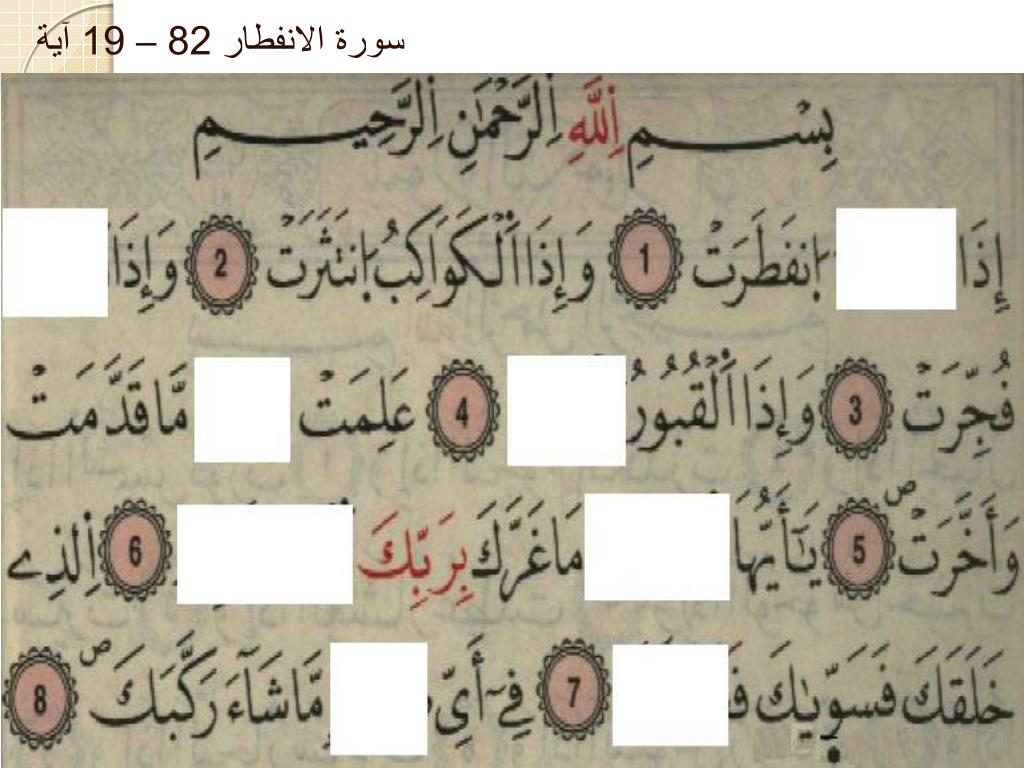 سورة الانفطار 82 – 19 آية
بِسْمِ اِ۬للَّهِ اِ۬لرَّحْمَٰنِ اِ۬لرَّحِيمِ
إِذَا اَ۪نفَطَرَتْ 1 وَإِذَا اَ۬لْكَوَاكِبُ اُ۪نتَثَرَتْ 2 وَإِذَا
فُجِّرَتْ 3 وَإِذَا اَ۬لْقُبُورُ 4 عَلِمَتْ مَّا قَدَّمَتْ
وَأَخَّرَتْ 5 يَٰٓأَيُّهَا مَا غَرَّكَ بِرَبِّكَ 6 اَ۬لذِے
خَلَقَكَ فَسَوّ۪يٰكَ 7 فِےٓ أَيِّ مَّا شَآءَ رَكَّبَكَ 8